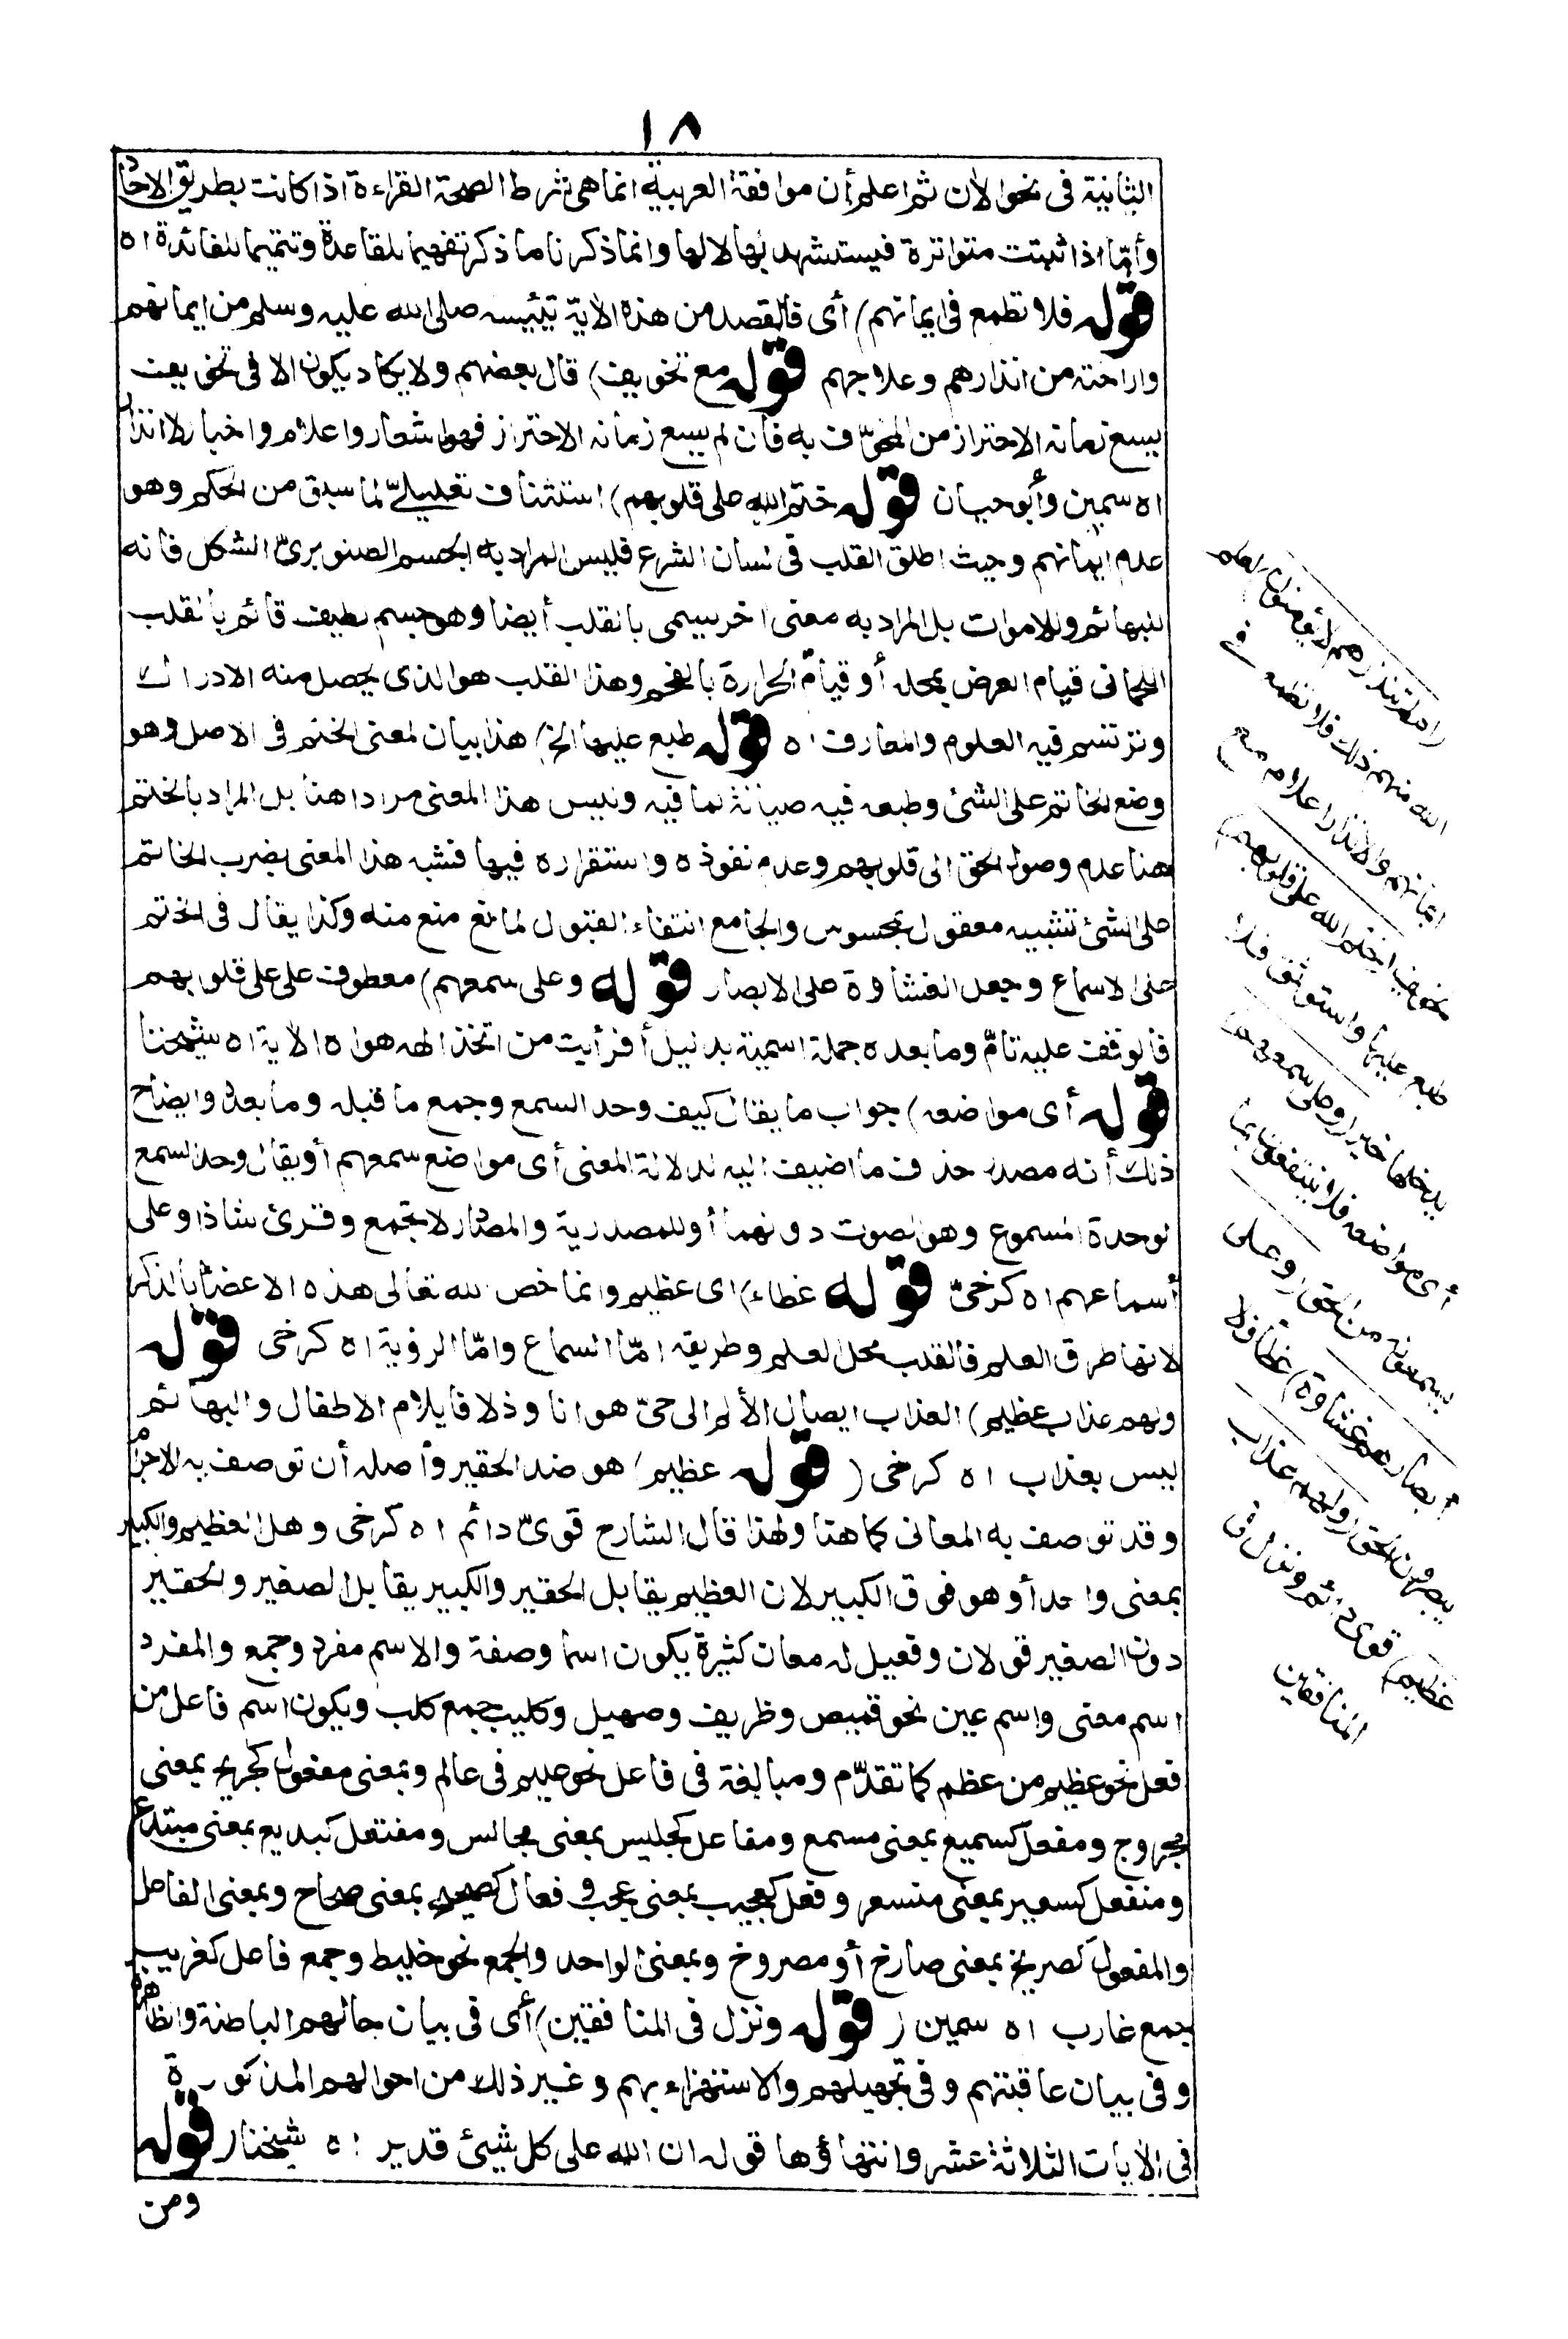 ١٨
الثانية فى نحو الأن ثم اعلم أن موافقة العربية انما هى شرط لصحة القراءة اذا كانت بطريق الاحاد
وأمّا اذا ثبتت متواترة فيستشهد بها لا لها وانما ذكرنا ما ذكر تفهيما للقاعدة وتتميما للفائدة اه
قوله فلا تطمع فى ايمانهم) أى فالقصد من هذه الأية تيئيسه صلى الله عليه وسلم من ايمانهم
واراحته من انذارهم وعلاجهم قوله مع تخويف) قال بعضهم ولا يكاد يكون الا فى تخويف
يسع زمانه الاحتراز من المخوّف به فأن لم يسع زمانه الاحتراز فهو اشعار واعلام واخبار لا انذار
اه سمين وأبو حيان قوله ختم الله على قلوبهم) استئناف تعليلىّ لما سبق من الحكم وهو
عدم ايمانهم وحيث اطلق القلب فى لسان الشرع فليس المراد به الجسم الصنوبرىّ الشكل فانه
للبهائم وللاموات بل المراد به معنى اخر يسمى بالقلب أيضا وهو جسم لطيف قائم بالقلب
اللحمانى قيام العرض بمحله أو قيام الحرارة بالفحم وهذا القلب هو الذى يحصل منه الادراك
وترتسم فيه العلوم والمعارف اه قوله طبع عليها الخ) هذا بيان لمعنى الختم فى الاصل وهو
وضع الخاتم على الشئ وطبعه فيه صيانة لما فيه وليس هذا المعنى مرادا هنا بل المراد بالختم
هنا عدم وصول الحق الى قلوبهم وعدم نفوذه واستقراره فيها فشبه هذا المعنى بضرب الخاتم
على الشئ تشبيه معقول بمحسوس والجامع انتفاء القبول لمانع منع منه وكذا يقال فى الختم
على الاسماع وجعل الغشاوة على الابصار قوله وعلى سمعهم) معطوف على على قلوبهم
فالوقف عليه تامّ وما بعده جملة اسمية بدليل أفرأيت من اتخذ الهه هواه الأية اه شيخنا
قوله أى مواضعه) جواب ما يقال كيف وحد السمع وجمع ما قبله وما بعده وايضاح
ذلك أنه مصدر حذف ما اضيف اليه لدلالة المعنى أى مواضع سمعهم أو يقال وحد السمع
لوحدة المسموع وهو الصوت دونهما أو للمصدرية والمصادر لا تجمع وقرئ شاذا وعلى
أسماعهم اه كرخىّ قوله غطاء) اى عظيم وانما خص الله تعالى هذه الاعضاء بالذكر
لانها طرق العلم فالقلب محل العلم وطريقه امّا السماع وامّا الرؤية اه كرخى قوله
ولهم عذاب عظيم) العذاب ايصال الألم الى حىّ هوانا وذلا فايلام الاطفال والبهائم
ليس بعذاب اه كرخى (قوله عظيم) هو ضد الحقير وأصله أن توصف به الاجرام
وقد توصف به المعانى كما هنا ولهذا قال الشارح قوىّ دائم اه كرخى وهل العظيم والكبير
بمعنى واحد أو هو فوق الكبير لان العظيم يقابل الحقير والكبير يقابل الصغير والحقير
دون الصغير قولان وفعيل له معان كثيرة يكون اسما وصفة والاسم مفرد وجمع والمفرد
اسم معنى واسم عين نحو قميص وظريف وصهيل وكليب جمع كلب ويكون اسم فاعل من
فعل نحو عظيم من عظم كما تقدّم ومبالغة فى فاعل نحو عليم فى عالم وبمعنى مفعول كجريح بمعنى
مجروح ومفعل كسميع بمعنى مسمع ومفاعل كجليس بمعنى مجالس ومفتعل كبديع بمعنى مبتدع
ومنفعل كسعير بمعنى منسعر وفعل كعجيب بمعنى عجب وفعال كصحيح بمعنى صحاح وبمعنى الفاعل
والمفعول كصريخ بمعنى صارخ أو مصروخ وبمعنى الواحد والجمع نحو خليط وجمع فاعل كغريب
جمع غارب اه سمين (قوله ونزل فى المنافقين) أى فى بيان حالهم الباطنة والظاهرة
وفى بيان عاقبتهم وفى تجهيلهم والاستهزاء بهم وغير ذلك من احوالهم المذكورة
فى الأيات الثلاثة عشر وانتهاؤها قوله ان الله على كل شيئ قدير اه شيخنا (قوله
ومن
(ام لم تنذرهم لا يؤمنون) لعلم
الله منهم ذلك فلا تطمع فى
ايمانهم والانذار اعلام مع
تخويف (ختم الله على قلوبهم)
طبع عليها واستوثق فلا
يدخلها خير (وعلى سمعهم)
أى مواضعه فلا ينتفعون بما
يسمعونه من الحق (وعلى
أبصارهم غشاوة) غطاء فلا
يبصرون الحق (ولهم عذاب
عظيم) قوى دائم ونزل فى
المنافقين